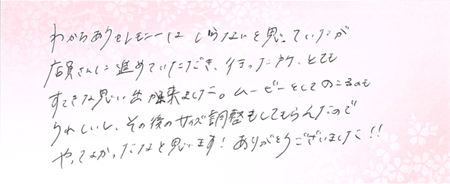 わからありセレモニーは しらないと思っていたが
店員さんに進めていただき、行った所、とても
すてきな思い出が出来ました。ムービーとしてのこるのも
うれしいし、その後のサイズ調整もしてもらえたので
やってよかったなと思います！ありがとうございました!!